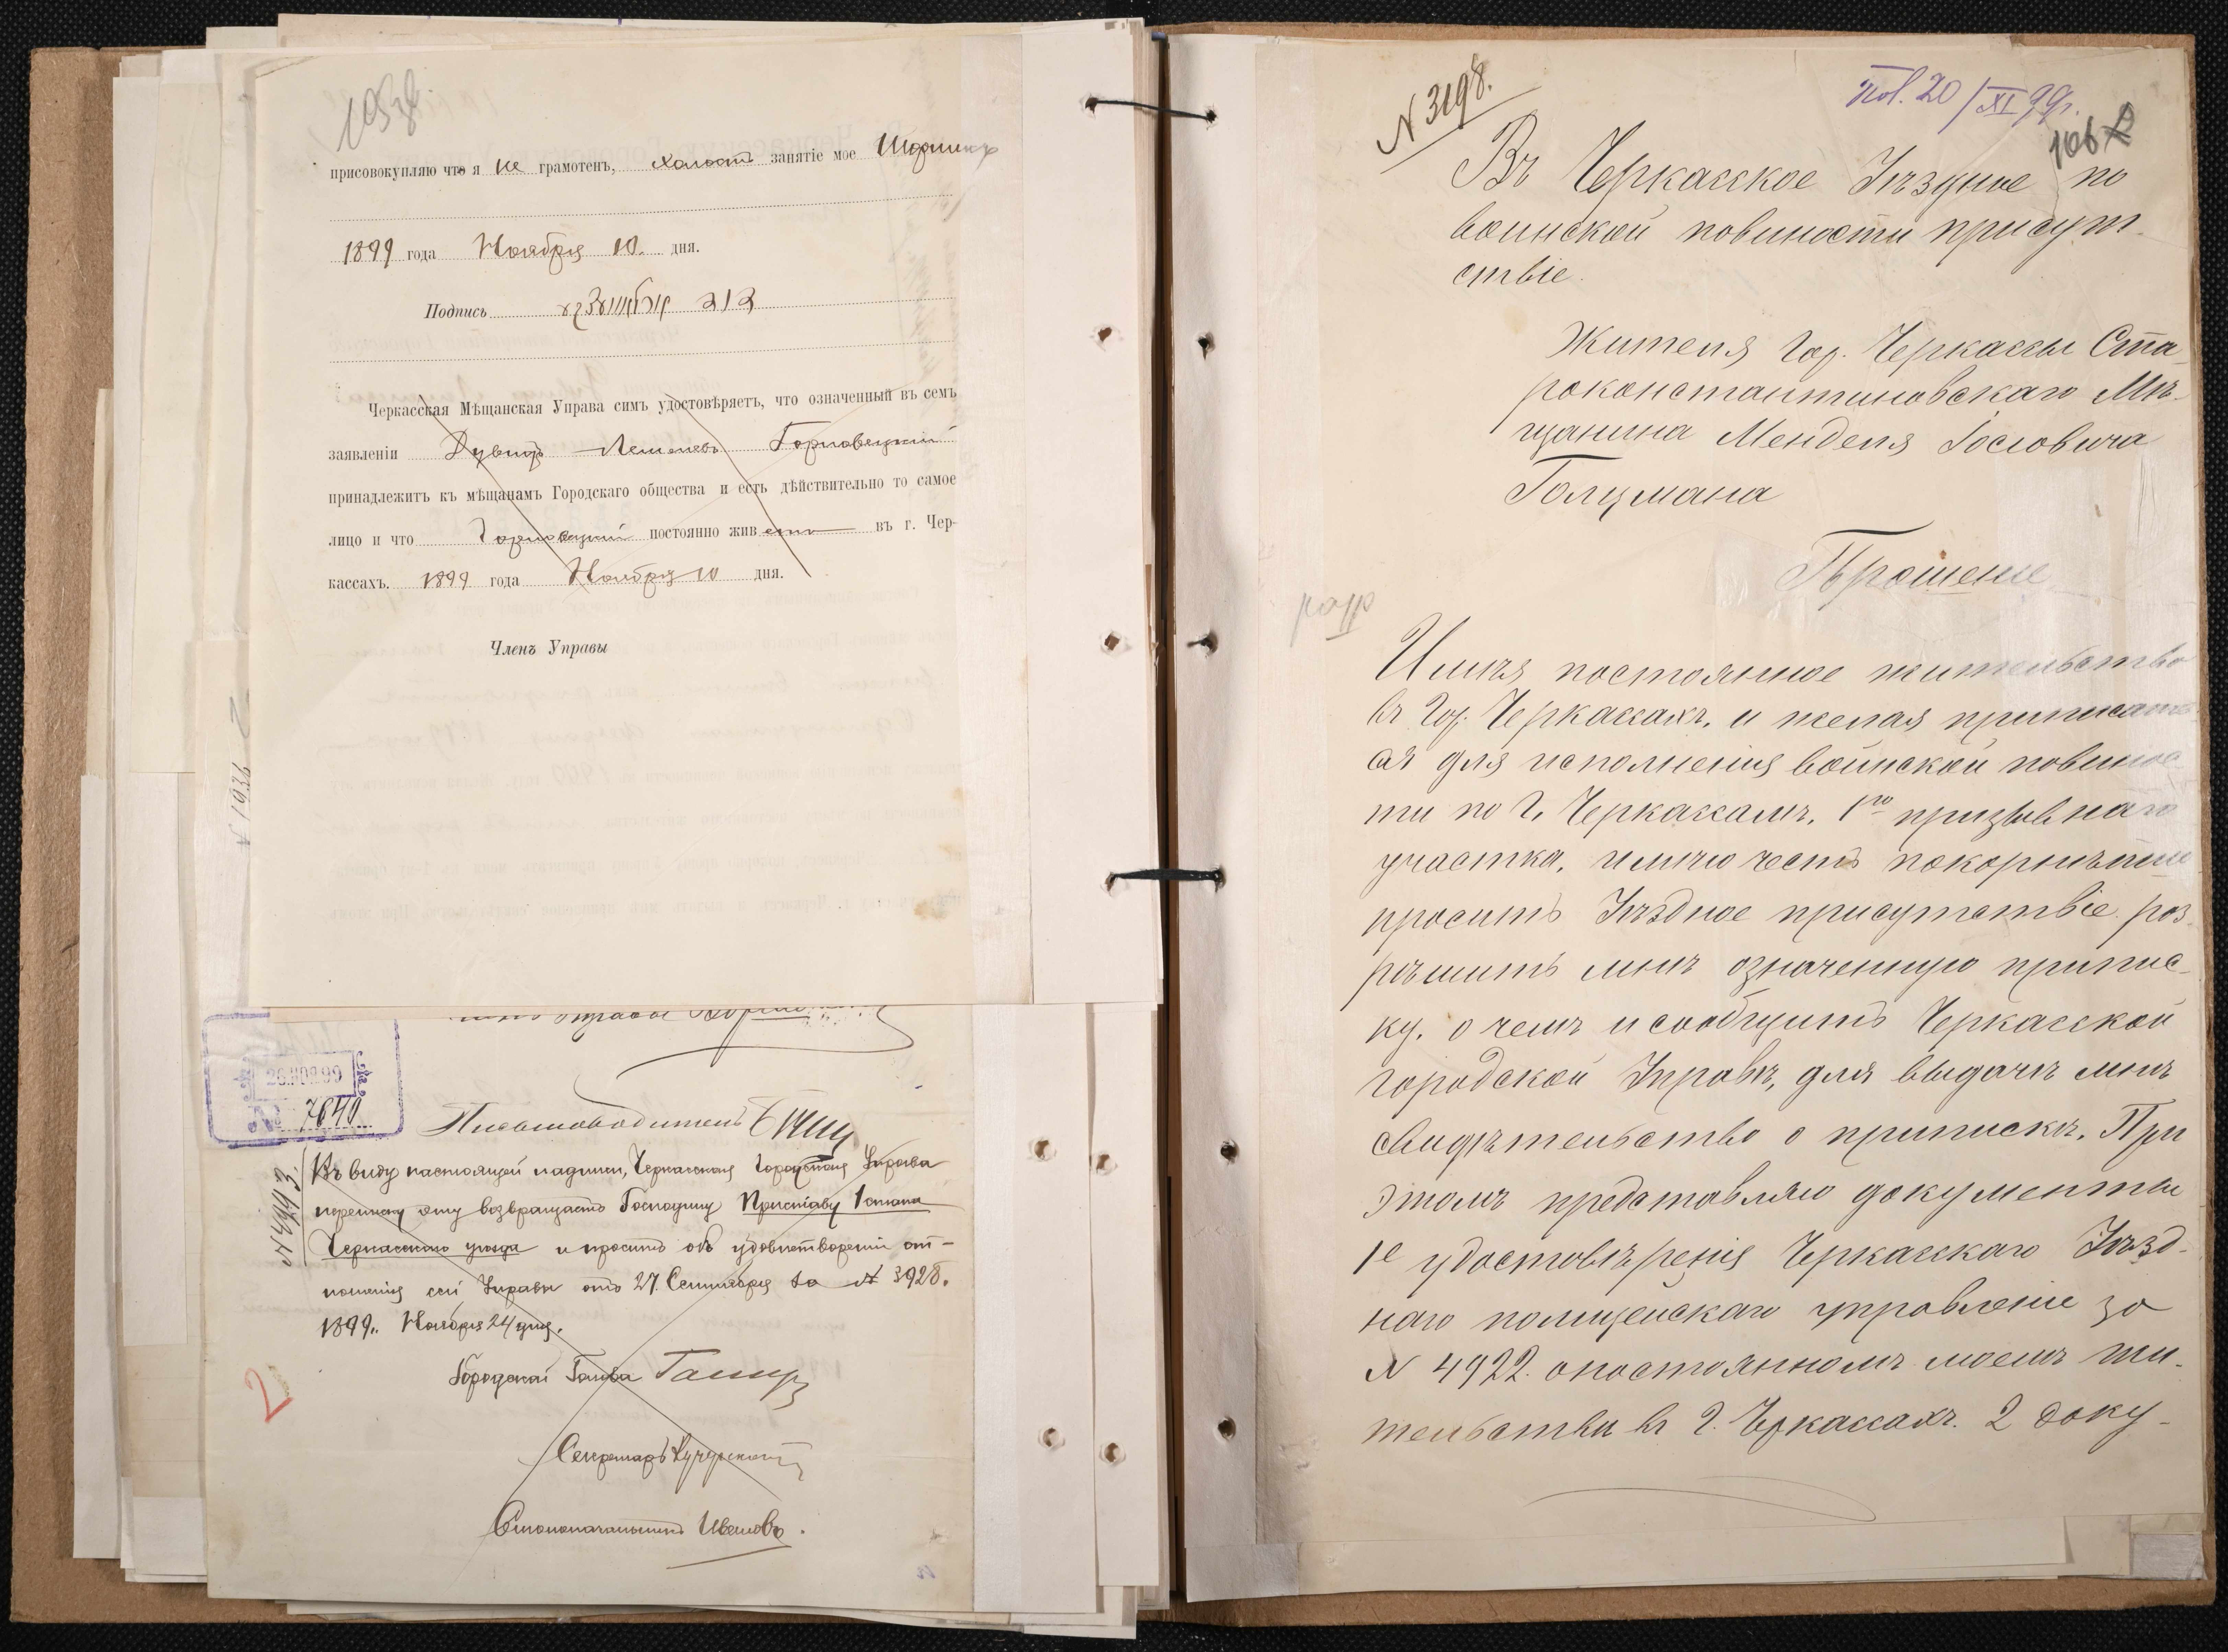 присовокупляю что я не грамотенъ, холостъ занятіе мое
1899 года Ноября 10. дня.
Подпись
Черкасская Мѣщанская Управа симъ удостовѣряетъ, что означенный въ семъ
заявленіи
принадлежитъ къ мѣщанамъ Городскаго общества и есть дѣйствительно то самое
лицо и что постоянно живетъ въ г. Чер-
кассахъ. 1899 года Ноября 10 дня.
Членъ Управы
26 НОЯ 99
№ 7640
Письмоводитель
№ 4993.
Въ виду настоящей надписи, Черкасская Городская Управа
переписку эту возвращаетъ Господину Приставу 1 стана
Черкасскаго уѣзда и проситъ объ удовлетвореніи от-
ношенія сей Управы отъ 27 Сентября за № 3928.
1899 г. Ноября 24 дня.
Городской Голова
Секретарь
Столоначальникъ
2
№ 3198.
Пол. 20/XI 99 г.
106
Въ Черкасское Уѣздное по
воинской повиности присут-
ствіе.
Жителя Гор. Черкассы Ста-
роконстантиновскаго Мѣ-
щанина Менделя Іосіовича
Голцмана
Прошеніе
Имѣя постоянное жительство
въ Гор. Черкассахъ, и желая приписать
ся для исполненія воинской повинос
ти по Г. Черкассамъ, 1го призывнаго
участка, имѣю честь покорнѣйше
просить Уѣздное присутствіе роз-
рѣшить мнѣ означенную припис-
ку, о чемъ и сообщить Черкасской
городской Управѣ, для выдачи мнѣ
свидѣтельство о припискѣ. При
этомъ представляю документы
1е удостовѣренія Черкасскаго Уѣзд-
наго полицейскаго управленіе за
№ 4922. о постоянномъ моемъ жи-
тельстви въ Г. Черкассахъ. 2 доку-